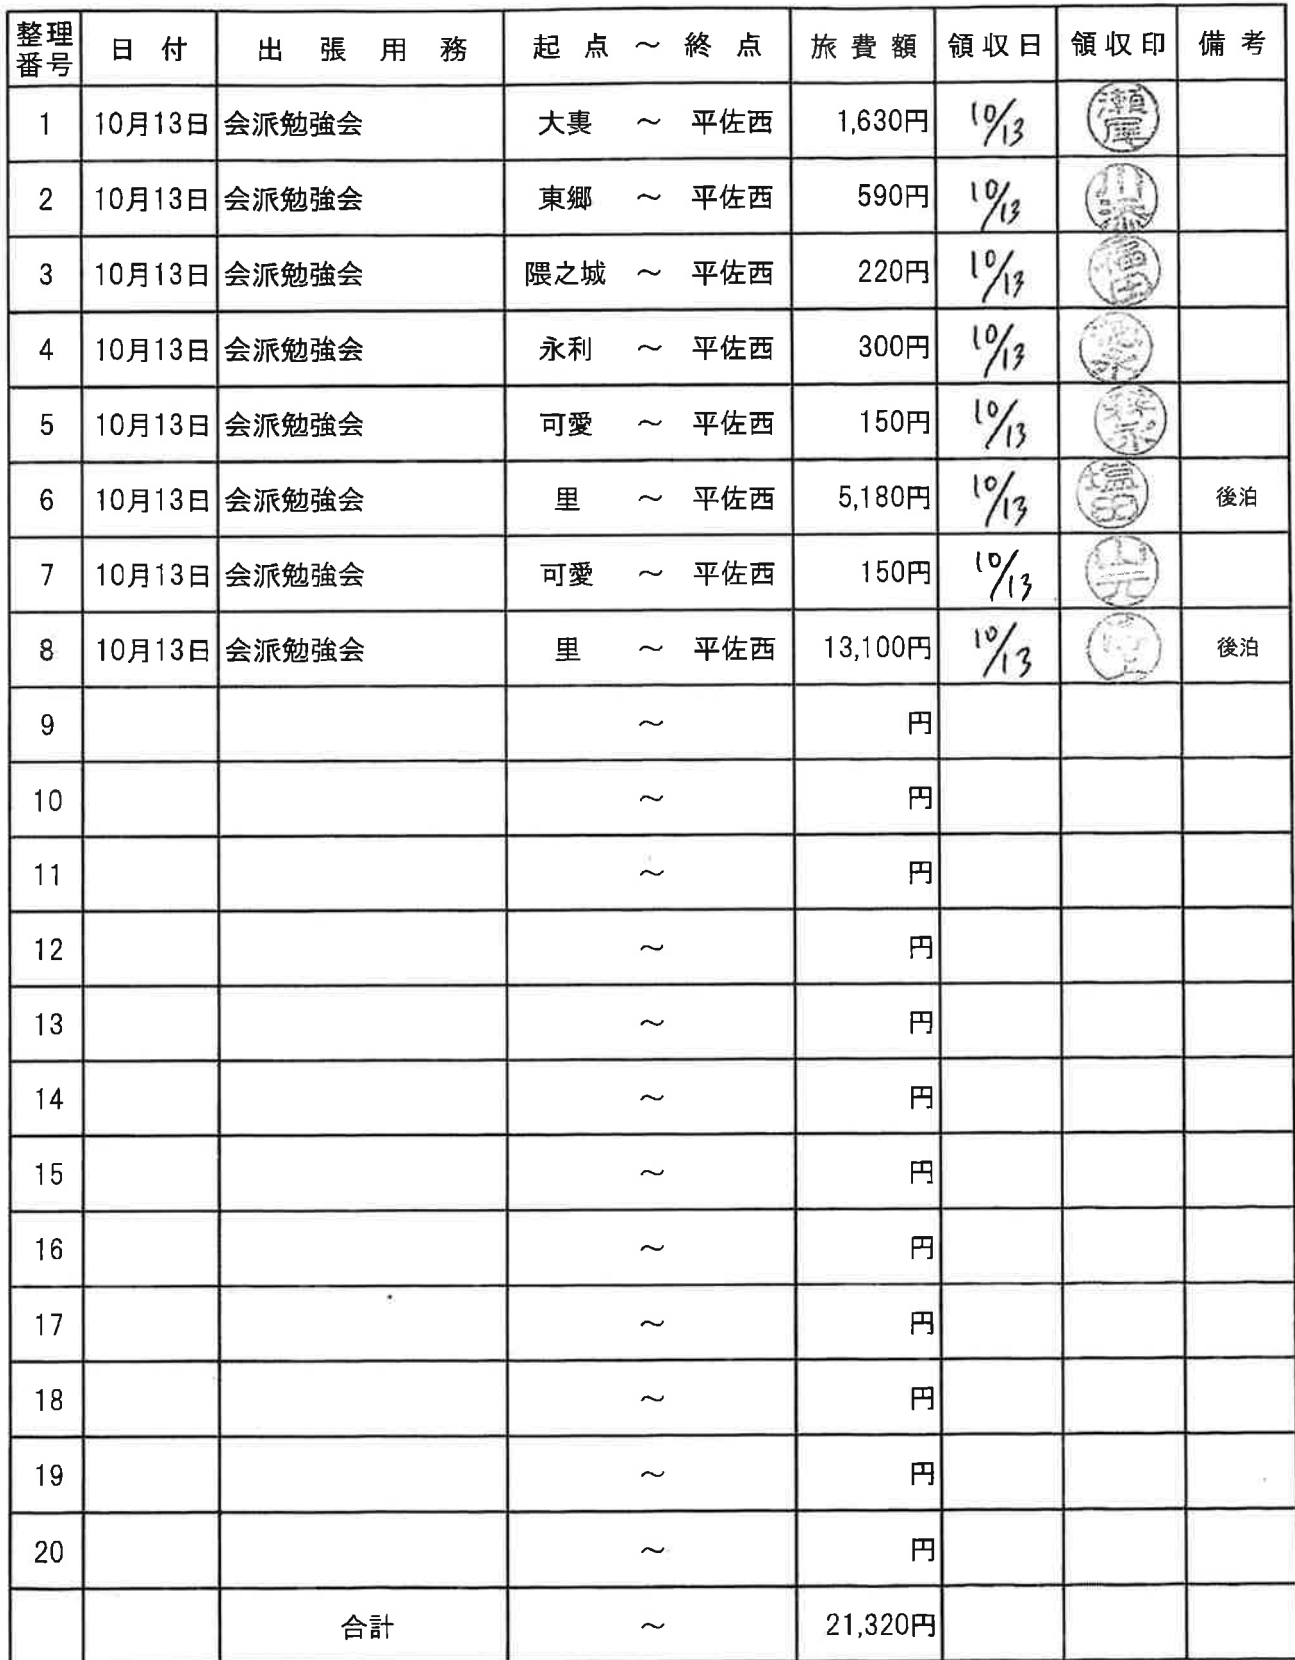 整理番号 日付 出張用務 起点～終点 旅費額 領収日 領収印 備考
1 10月13日 会派勉強会 大裏 ～ 平佐西 1,630円 10/13
2 10月13日 会派勉強会 東郷 ～ 平佐西 590円 10/13 川添
3 10月13日 会派勉強会 隈之城 ～ 平佐西 220円 10/13 福田
4 10月13日 会派勉強会 永利 ～ 平佐西 300円 10/13
5 10月13日 会派勉強会 可愛 ～ 平佐西 150円 10/13
6 10月13日 会派勉強会 里 ～ 平佐西 5,180円 10/13 塩田 後泊
7 10月13日 会派勉強会 可愛 ～ 平佐西 150円 10/13 山元
8 10月13日 会派勉強会 里 ～ 平佐西 13,100円 10/13 後泊
9 ～ 円
10 ～ 円
11 ～ 円
12 ～ 円
13 ～ 円
14 ～ 円
15 ～ 円
16 ～ 円
17 ～ 円
18 ～ 円
19 ～ 円
20 ～ 円
合計 ～ 21,320円